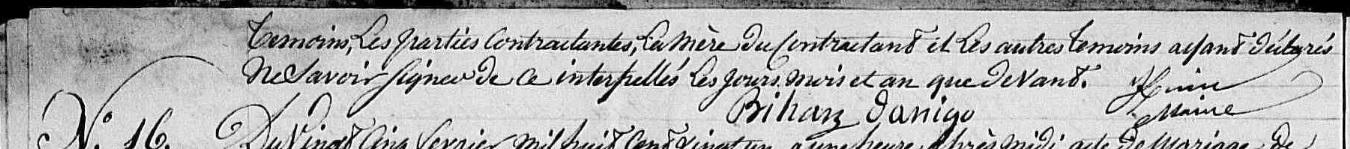 temoins, Les parties Contractantes, La Mère du Contractant et Les autres temoins ayant déclarés
Ne Savoir Signer de ce interpellés Les jours, mois et an que devant.
Bihan danigo
Maire
N.° 16. Du vingt Cinq fevrier mil huit Cent vingt un a une heure après midi acte de Mariage de